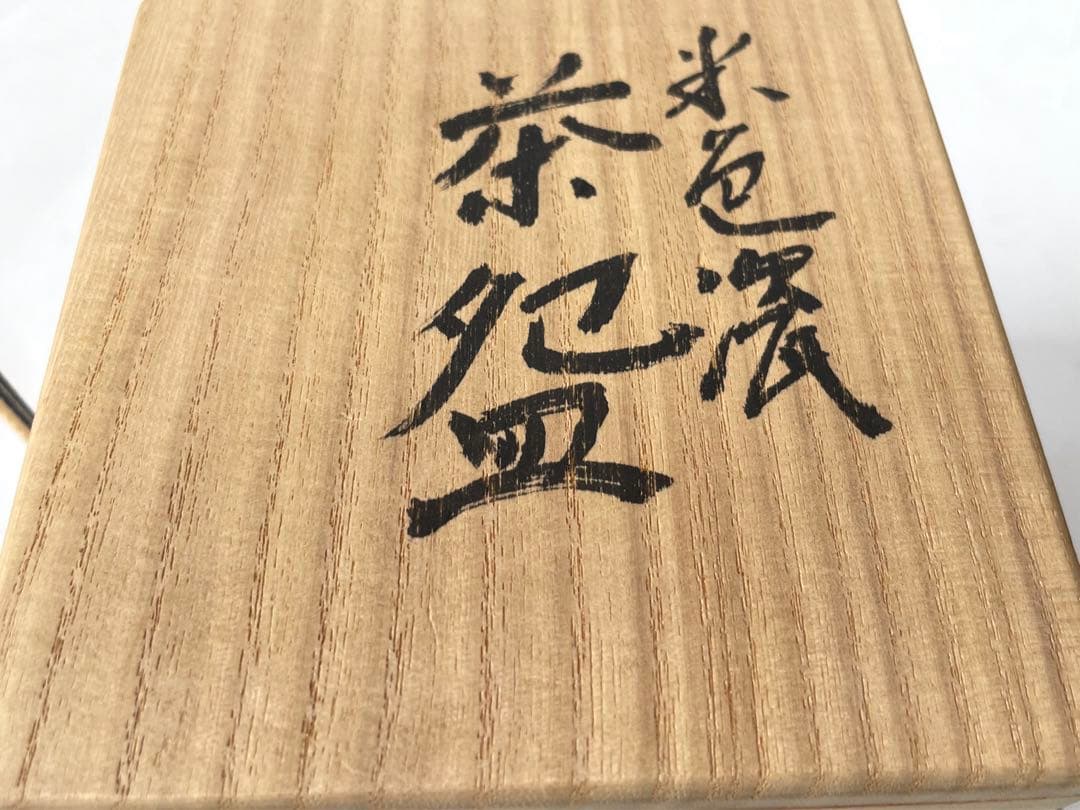 米色瓷
茶盌